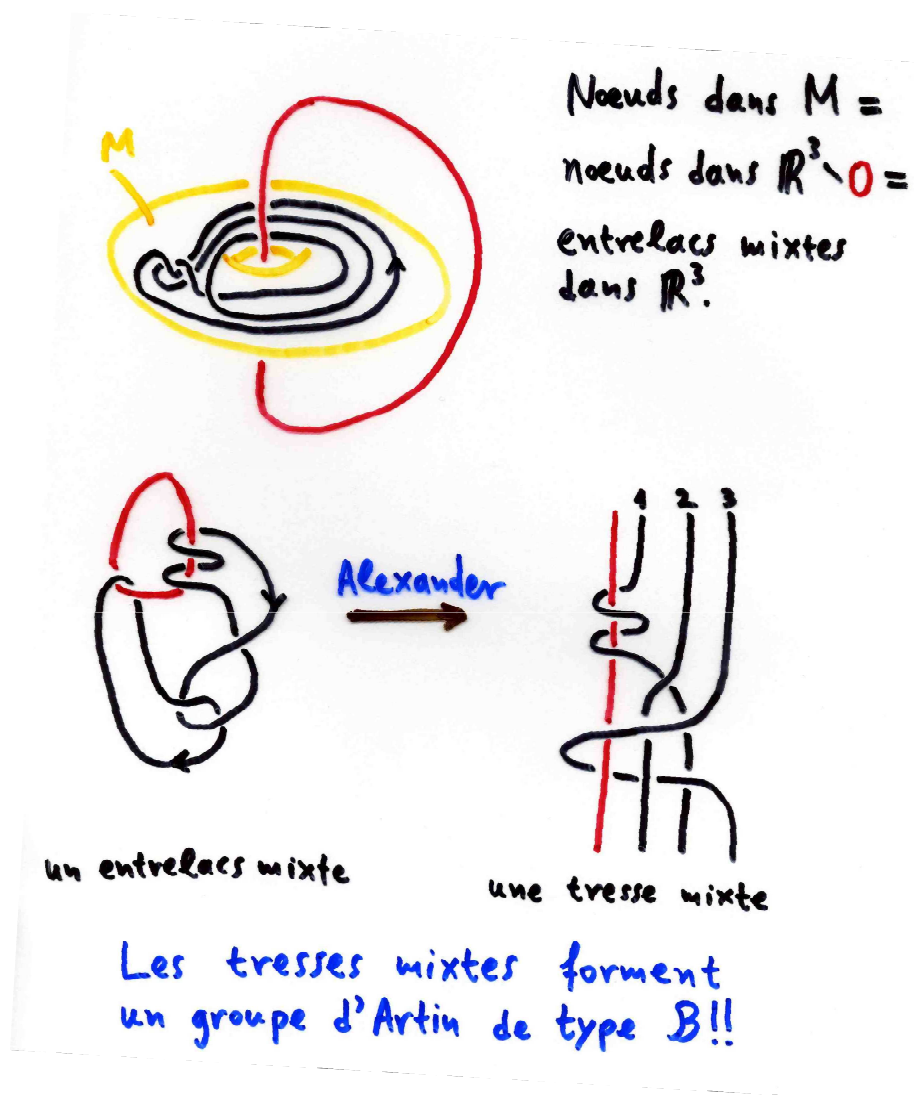 Nœuds dans M =
M
nœuds dans ℝ³∖O =
entrelacs mixtes
dans ℝ³.
1 2 3
Alexander
un entrelacs mixte
une tresse mixte
Les tresses mixtes forment
un groupe d'Artin de type B!!